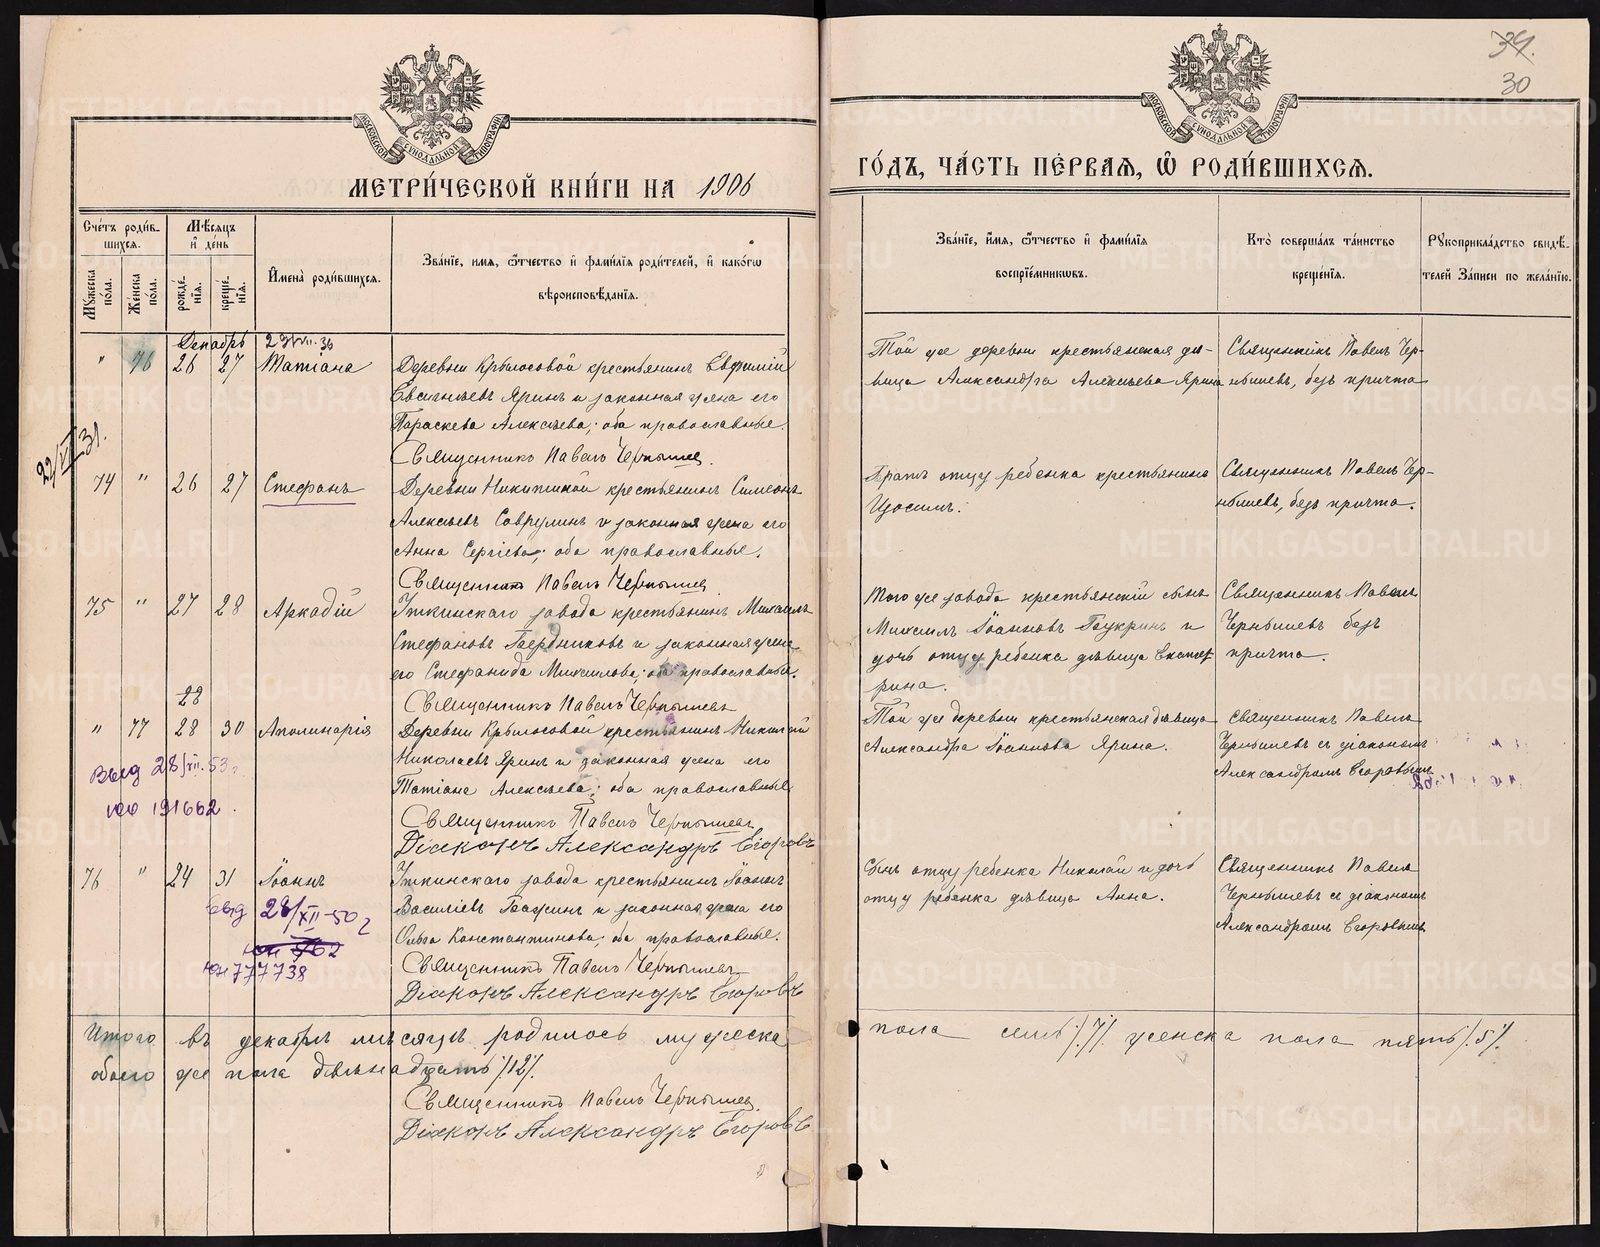 39.
30
МЕТРИ́ЧЕСКОЙ КНИ́ГИ НА 1906
ГО́ДЪ, ЧА́СТЬ ПЕ́РВАЯ, Ѿ РОДИ́ВШИХСЯ.
Сче́тъ роди́в-
шихся.
Мѣ́сяцъ
и де́нь
Му́жеска по́ла.
Же́нска по́ла.
рожде́-
нїя.
креще́-
нїя.
Имена̀ роди́вшихся.
Зва́нїе, имя, ѻ́тчество и фами́лїя роди́телей, и како́гѡ
вѣроисповѣ́данїя.
Зва́нїе, и́мя, ѻ́тчество и фами́лїя
воспрїе́мникѡвъ.
Кто̀ соверша́лъ та́инство
креще́нїя.
Рꙋкоприкла́дство свидѣ́-
телей за́писи по жела́нїю.
Декабрь
" 76 26 27 Татіана
Деревни Крылосовой крестьянинъ Евфимій
Евсигніевъ Яринъ и законная жена его
Параскева Алексѣева; оба православные.
Священникъ Павелъ Чернышев
Той же деревни крестьянская дѣ-
вица Александра Алексѣева Ярина
Священникъ Павелъ Чер-
нышевъ, безъ причта
74 " 26 27 Стефанъ
Деревни Никитиной крестьянинъ Симеонъ
Алексѣевъ Саврулинъ и законная жена его
Анна Сергіева; оба православные.
Священникъ Павелъ Чернышев
Братъ отцу ребенка крестьянинъ
Священникъ Павелъ Чер-
нышевъ, безъ причта.
75 " 27 28 Аркадій
Уткинскаго завода крестьянинъ Михаилъ
Стефановъ и законная жена
его Стефанида Михаилова; оба православные.
Священникъ Павелъ Чернышевъ
Того же завода крестьянскій сынъ
Михаилъ Іоанновъ и
дочь отцу ребенка дѣвица Екате-
рина.
Священникъ Павелъ
Чернышевъ безъ
причта.
28
" 77 28 30 Аполинарія
Деревни Крылосовой крестьянинъ Николай
Николаевъ Яринъ и законная жена его
Татіана Алексѣева; оба православные
Священникъ Павелъ Чернышевъ
Діаконъ Александръ Егоровъ
Той же деревни крестьянская дѣвица
Александра Іоаннова Ярина.
Священникъ Павелъ
Чернышевъ съ діакономъ
Александромъ Егоровымъ
Выд 28/XII-53г
191662
76 " 24 31 Іоаннъ
Уткинскаго завода крестьянинъ Іоаннъ
Василіевъ и законная жена его
Ольга Константинова, оба православные.
Священникъ Павелъ Чернышевъ
Діаконъ Александръ Егоровъ
Сынъ отцу ребенка Николай и дочь
отцу ребенка дѣвица Анна.
Священникъ Павелъ
Чернышевъ съ діакономъ
Александромъ Егоровымъ
выд 28/XII-50г
777738
Итого въ декабрѣ мѣсяцѣ родилось мужеска пола семь /.7./. женска пола пять /.5./.
обоего же пола двѣнадцать /.12./.
Священникъ Павелъ Чернышев
Діаконъ Александръ Егоровъ
METRIKI.GASO-URAL.RU